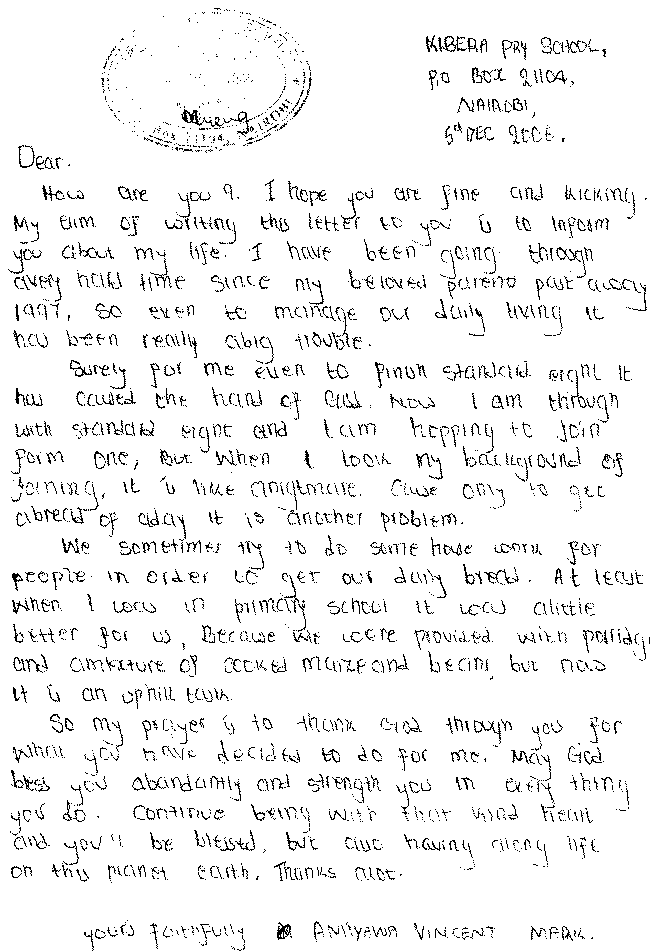 KIBERA PRY SCHOOL,
P.O BOX 21104,
NAIROBI,
5th DEC 2006.
Dear.
How are you?. I hope you are fine and kicking.
My aim of writing this letter to you is to inform
you about my life. I have been going through
avery hard time since my beloved parents past away
1997, so even to manage our daily living it
has been really abig trouble.
Surely for me even to finish standard eight it
has caused the hand of God. Now I am through
with standard eight and I am hopping to join
form one, But when I look my background of
joining, it is like anightmare. Cause only to get
abread of aday it is another problem.
We sometimes try to do some house work for
people in order to get our daily bread. At least
when I was in primary school it was alittle
better for us, Because we were provided with porridge
and amixture of cooked maize and beans but now
it is an uphill task.
So my prayer is to thank God through you for
what you have decided to do for me. May God
bless you abundantly and strength you in every thing
you do. Continue being with that kind heart
and you'll be blessed, but also having along life
on this planet earth. Thanks alot.
yours faithfully VINCENT MARK.